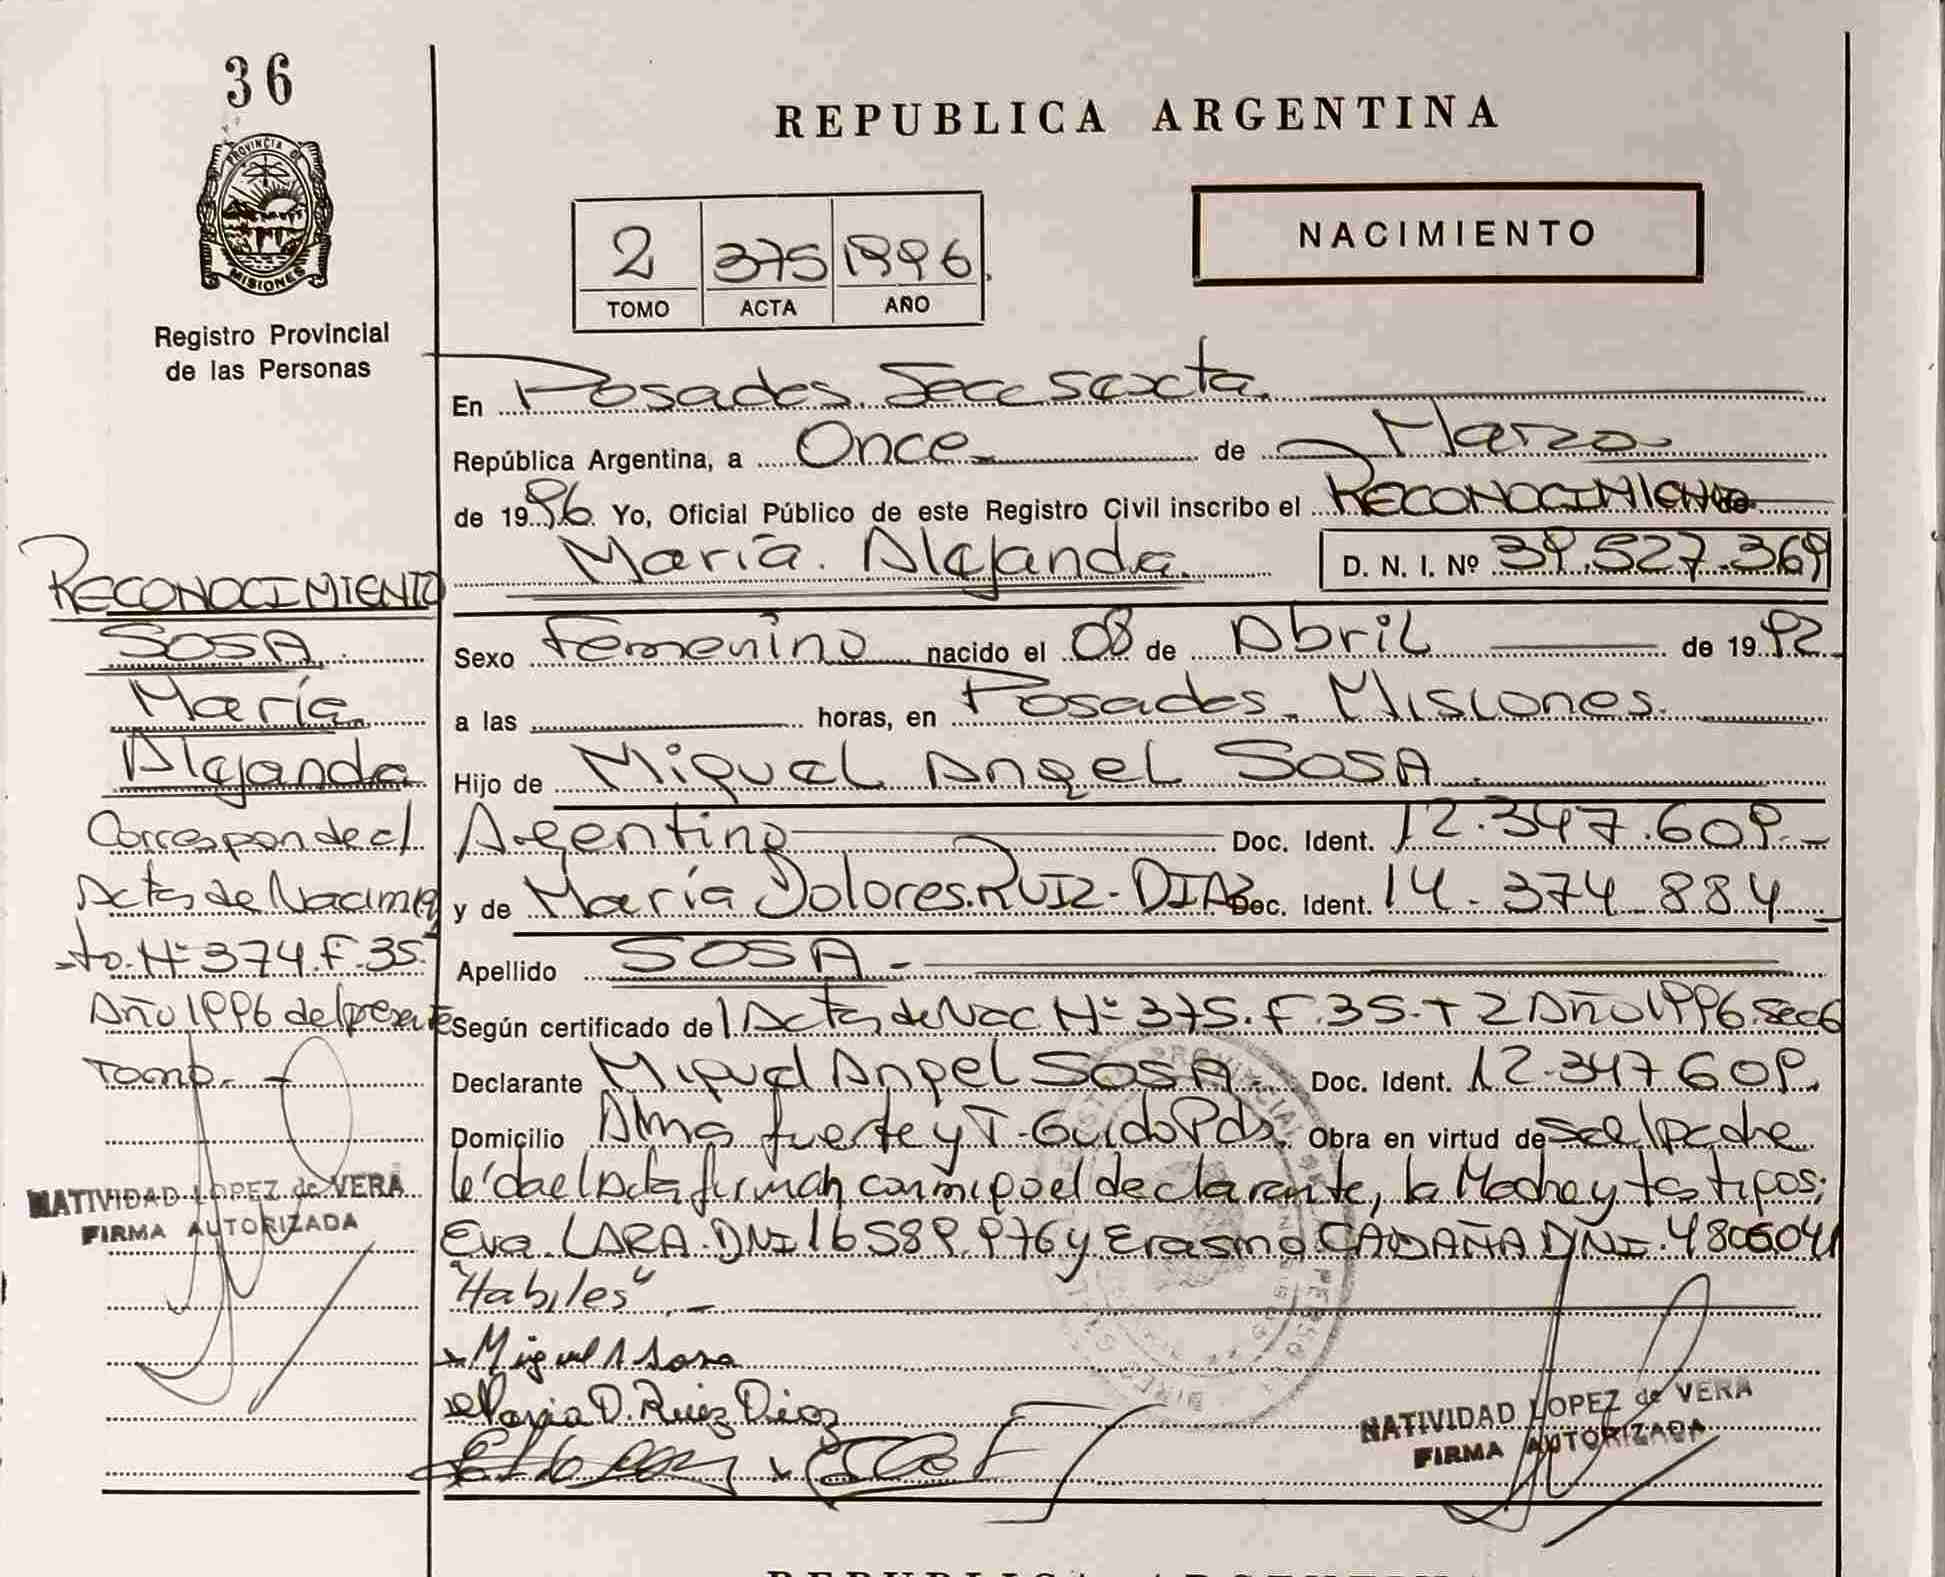 36
PROVINCIA DE
MISIONES
Registro Provincial
de las Personas
REPUBLICA ARGENTINA
2 375 1996
TOMO ACTA AÑO
NACIMIENTO
En Posadas. Secc sexta
República Argentina, a Once de Marzo
de 1996. Yo, Oficial Público de este Registro Civil inscribo el RECONOCIMIENTO de
María. Alejanda. D. N. I. Nº 39.527.369
Sexo Femenino nacido el 08 de Abril de 1992
a las horas, en Posadas - Misiones.
Hijo de Miguel Angel SOSA.
Argentino Doc. Ident. 12.347.609.-
y de María Dolores. RUIZ - DIAZ Doc. Ident. 14.374.884
Apellido SOSA.-
Según certificado del Acta de Nac Nº 375. F. 35 - T 2 Año 1996. Sec 6
Declarante Miguel Angel SOSA. Doc. Ident. 12.347.609.
Domicilio Alma fuerte y T. Guido Pdas. Obra en virtud de ser el padre
leída el Acta firman conmigo el declarante, la Madre y testigos;
Eva. LARA. DNI 16.589.976 y Erasmo DNI. 4806041
"Habiles".-
Miguel A Sosa
Maria D. Ruiz Diaz
NATIVIDAD LOPEZ de VERA
FIRMA AUTORIZADA
RECONOCIMIENTO
SOSA
María
Alejanda
Corresponde al
Acta de Nacimie
to. Nº 374. F. 35
Año 1996 del presente
Tomo.-
NATIVIDAD LOPEZ de VERA
FIRMA AUTORIZADA